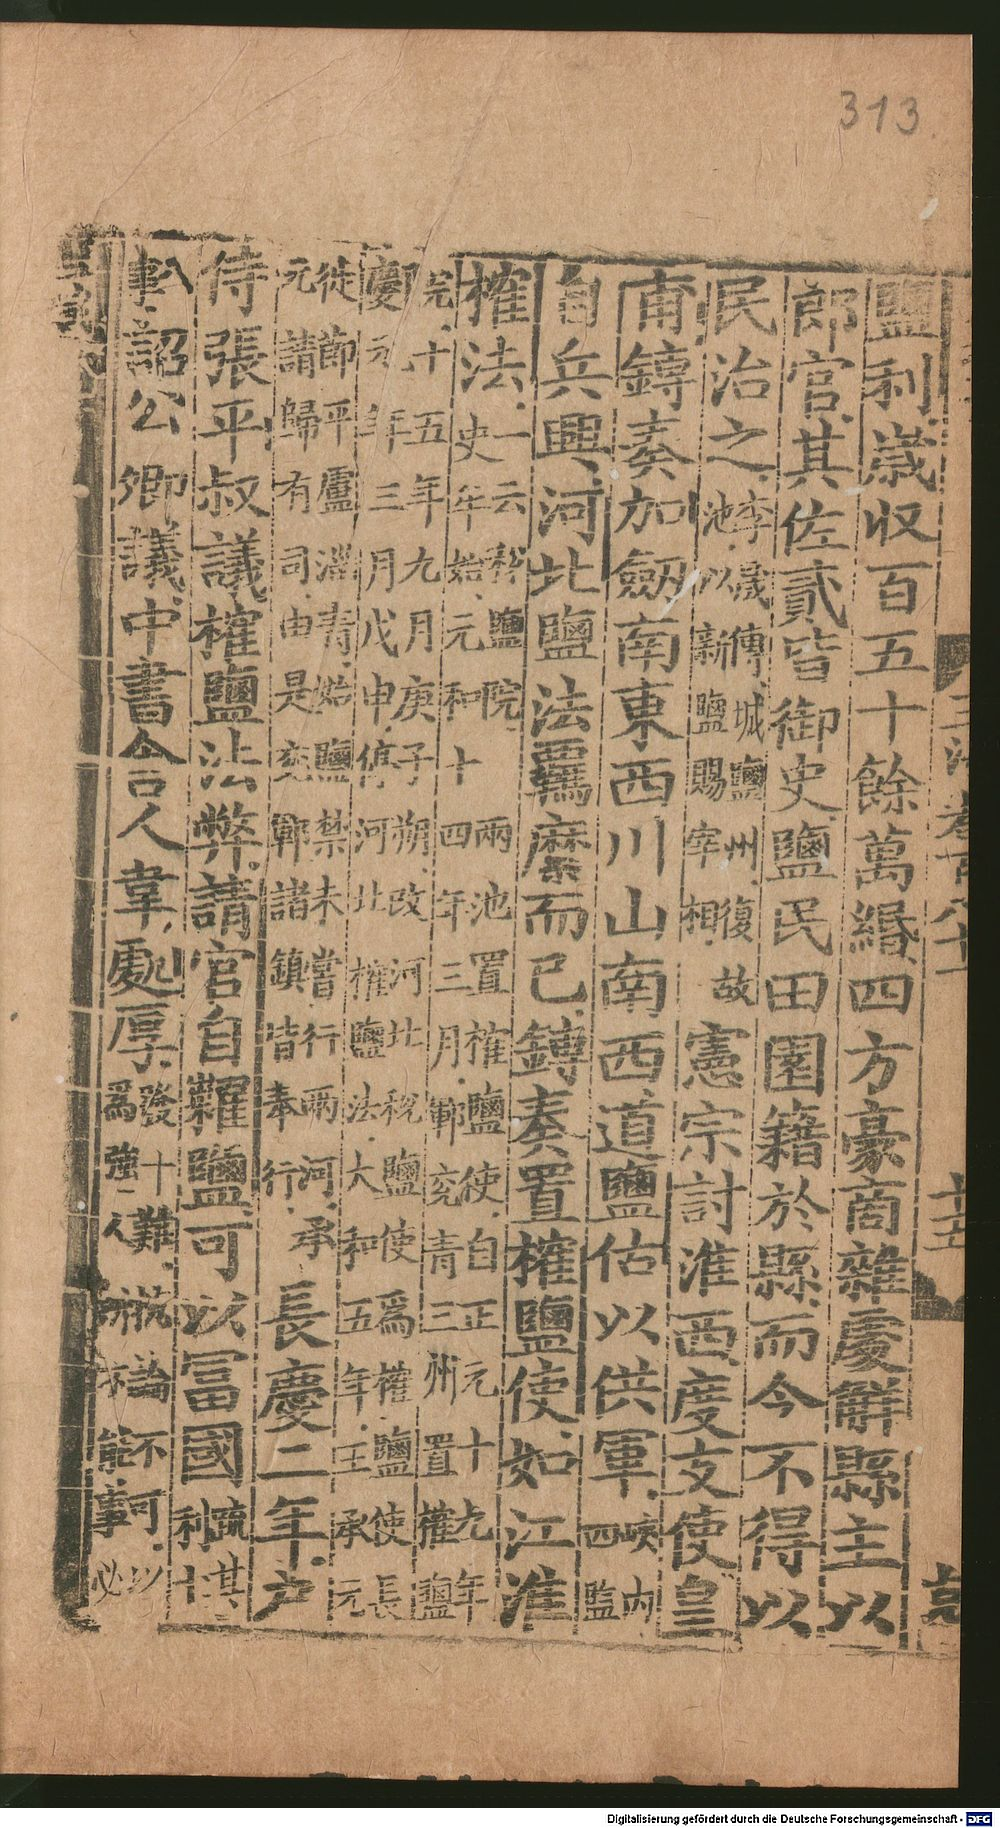 313
鹽利歲収百五十餘萬緡四方豪商雜處解縣主以
郎官其佐貳皆御史鹽民田園籍於縣而今不得以
民治之李晟傳城鹽州復故池以新鹽賜宰相憲宗討淮西度支使皇
甫鎛奏加劔南東西川山南西道鹽估以供軍峽內四監
自兵興河北鹽法羈縻而已鎛奏置榷鹽使如江淮
榷法一云稅鹽院兩池置榷鹽使自正元十九年史牟始元和十四年三月鄆兖青三州置榷鹽
院十五年九月庚子朔改河北稅鹽使爲榷鹽使長慶元年三月戊申停河北榷鹽法大和五年王承元
徙節平盧淄青始鹽禁未嘗行兩河承元請歸有司由是兖鄆諸鎮皆奉行長慶二年戶
侍張平叔議榷鹽法弊請官自糶鹽可以冨國疏其利十
八事詔公卿議中書舍人韋處厚發十難誚論不可以爲強人所不能事必
玉海卷百八十一
十五
Digitalisierung gefördert durch die Deutsche Forschungsgemeinschaft - DFG